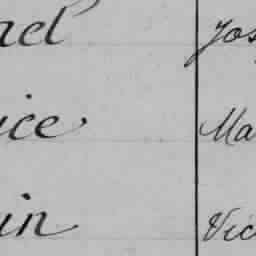 ael Jos
ice Ma
in Vic